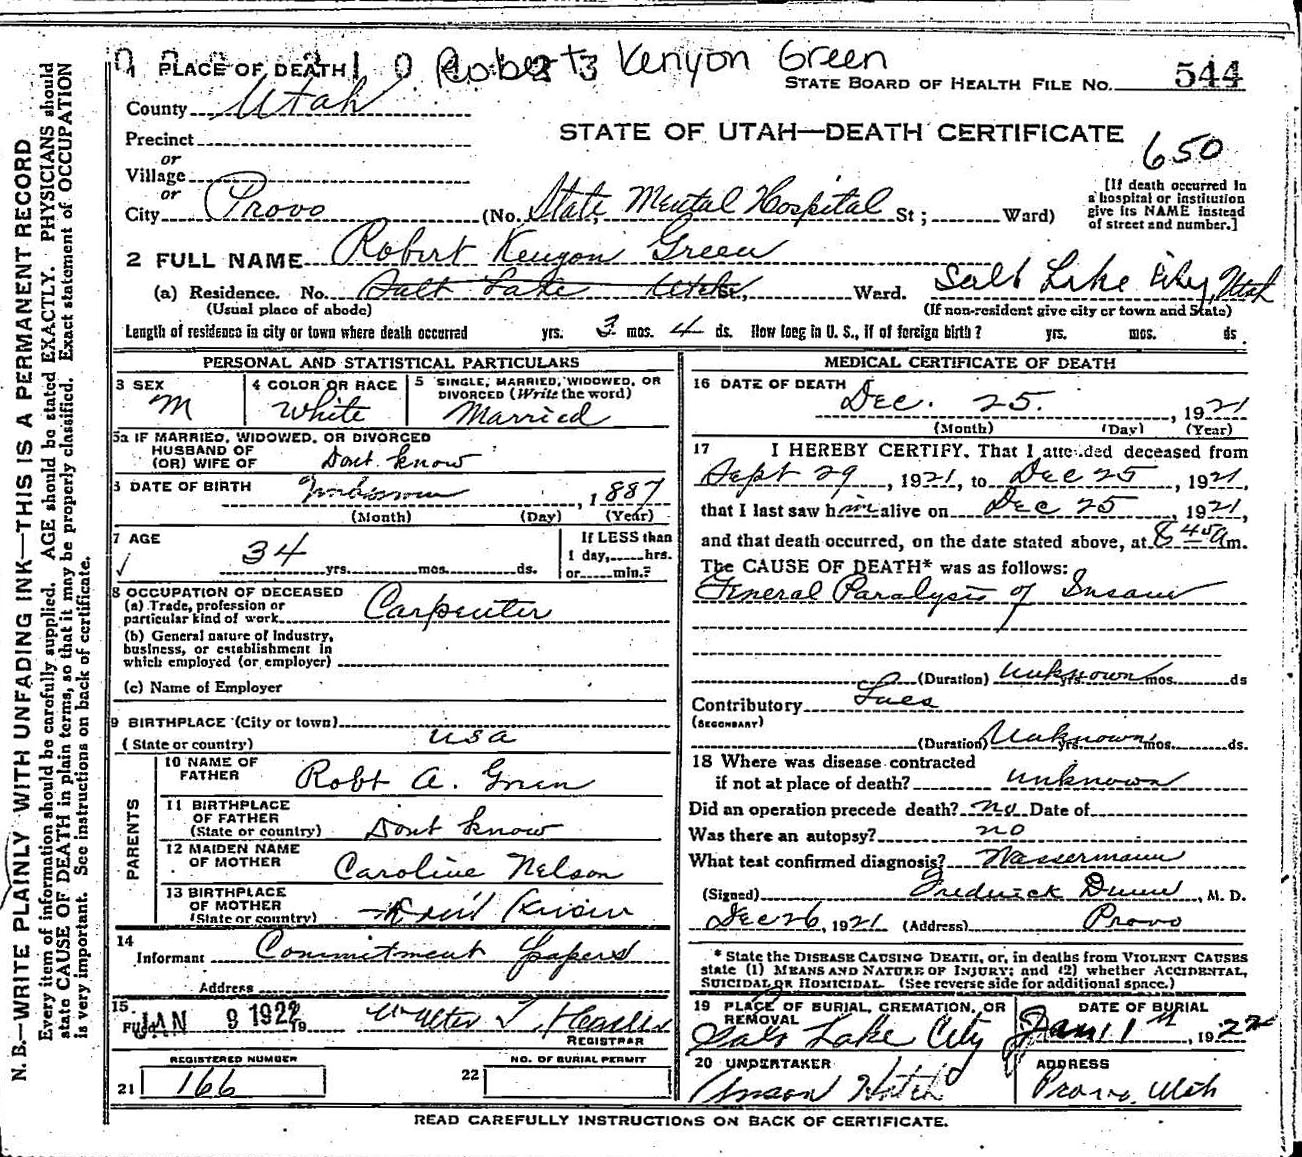 N. B.—WRITE PLAINLY WITH UNFADING INK—THIS IS A PERMANENT RECORD
Every item of information should be carefully supplied. AGE should be stated EXACTLY. PHYSICIANS should
state CAUSE OF DEATH in plain terms, so that it may be properly classified. Exact statement of OCCUPATION
is very important. See instructions on back of certificate.
Robert Kenyon Green
1 PLACE OF DEATH
STATE BOARD OF HEALTH FILE NO. 544
County Utah
STATE OF UTAH—DEATH CERTIFICATE
650
Precinct
or
Village
or
City Provo (No. State Mental Hospital St; Ward)
[If death occurred in
a hospital or institution
give its NAME instead
of street and number.]
2 FULL NAME Robert Kenyon Green
(a) Residence. No. Salt Lake Utah St, Ward. Salt Lake City, Utah
(Usual place of abode) (If non-resident give city or town and State)
Length of residence in city or town where death occurred yrs. 3 mos. 4 ds. How long in U. S., if of foreign birth? yrs. mos. ds.
PERSONAL AND STATISTICAL PARTICULARS
3 SEX M
4 COLOR OR RACE White
5 SINGLE, MARRIED, WIDOWED, OR
DIVORCED (Write the word)
Married
5a IF MARRIED, WIDOWED, OR DIVORCED
HUSBAND OF
(OR) WIFE OF Dont know
6 DATE OF BIRTH , 1887
(Month) (Day) (Year)
7 AGE
34 yrs. mos. ds.
If LESS than
1 day, hrs.
or min.?
8 OCCUPATION OF DECEASED
(a) Trade, profession or
particular kind of work Carpenter
(b) General nature of Industry,
business, or establishment in
which employed (or employer)
(c) Name of Employer
9 BIRTHPLACE (City or town)
(State or country) USA
PARENTS
10 NAME OF
FATHER Robt A. Green
11 BIRTHPLACE
OF FATHER
(State or country) Dont know
12 MAIDEN NAME
OF MOTHER Caroline Nelson
13 BIRTHPLACE
OF MOTHER
(State or country)
14
Informant Commitment Papers
Address
15
Filed JAN 9 1922 19
REGISTRAR
REGISTERED NUMBER
21 166
NO. OF BURIAL PERMIT
22
MEDICAL CERTIFICATE OF DEATH
16 DATE OF DEATH
Dec. 25. , 1921
(Month) (Day) (Year)
17 I HEREBY CERTIFY, That I attended deceased from
Sept 29, 1921, to Dec 25, 1921,
that I last saw him alive on Dec 25, 1921,
and that death occurred, on the date stated above, at 8 45 a m.
The CAUSE OF DEATH* was as follows:
General Paralysis of Insane
(Duration) Unknown yrs. mos. ds
Contributory Lues
(SECONDARY)
(Duration) Unknown yrs. mos. ds.
18 Where was disease contracted
if not at place of death? unknown
Did an operation precede death? no Date of
Was there an autopsy? no
What test confirmed diagnosis? Wassermann
(Signed) Fredrick Dunn, M. D.
Dec 26, 1921 (Address) Provo
* State the DISEASE CAUSING DEATH, or, in deaths from VIOLENT CAUSES
state (1) MEANS AND NATURE OF INJURY; and (2) whether ACCIDENTAL,
SUICIDAL OR HOMICIDAL. (See reverse side for additional space.)
19 PLACE OF BURIAL, CREMATION, OR
REMOVAL
Salt Lake City
DATE OF BURIAL
Jan 11th, 1922
20 UNDERTAKER
Anson Hatch
ADDRESS
Provo, Utah
READ CAREFULLY INSTRUCTIONS ON BACK OF CERTIFICATE.